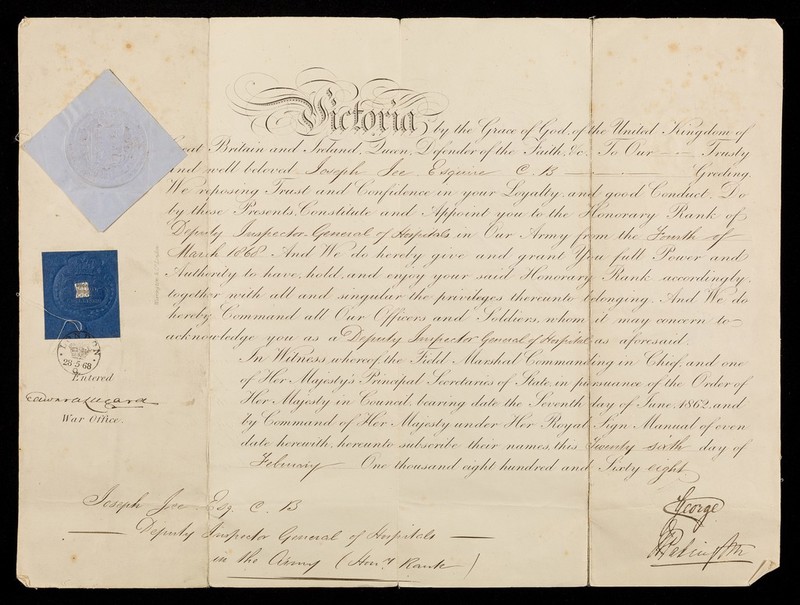 Victoria by the Grace of God, of the United Kingdom of
Great Britain and Ireland, Queen, Defender of the Faith, &c. To Our Trusty
and well beloved Joseph Jee Esquire C. B Greeting.
We reposing Trust and Confidence in your Loyalty, and good Conduct, Do
by these Presents, Constitute and Appoint you to the Honorary Rank of
Deputy Inspector General of Hospitals in Our Army from the Fourth of
March 1868 And We do hereby give and grant You full Power and
Authority to have, hold, and enjoy your said Honorary Rank accordingly,
together with all and singular the privileges thereunto belonging. And We do
hereby Command all Our Officers and Soldiers, whom it may concern to
acknowledge you as a Deputy Inspector General of Hospitals as aforesaid.
In Witness whereof, the Field Marshal Commanding in Chief, and one
of Her Majesty's Principal Secretaries of State, in pursuance of the Order of
Her Majesty in Council, bearing date the Seventh day of June, 1862, and
by Command of Her Majesty under Her Royal Sign Manual of even
date herewith, hereunto subscribe their names, this Twenty sixth day of
February One thousand eight hundred and Sixty eight
28·5·68
Entered
Edward Lugard
War Office.
Joseph Jee Esq. C. B
Deputy Inspector General of Hospitals
in the Army (Hon.y Rank)
George
J Pakington